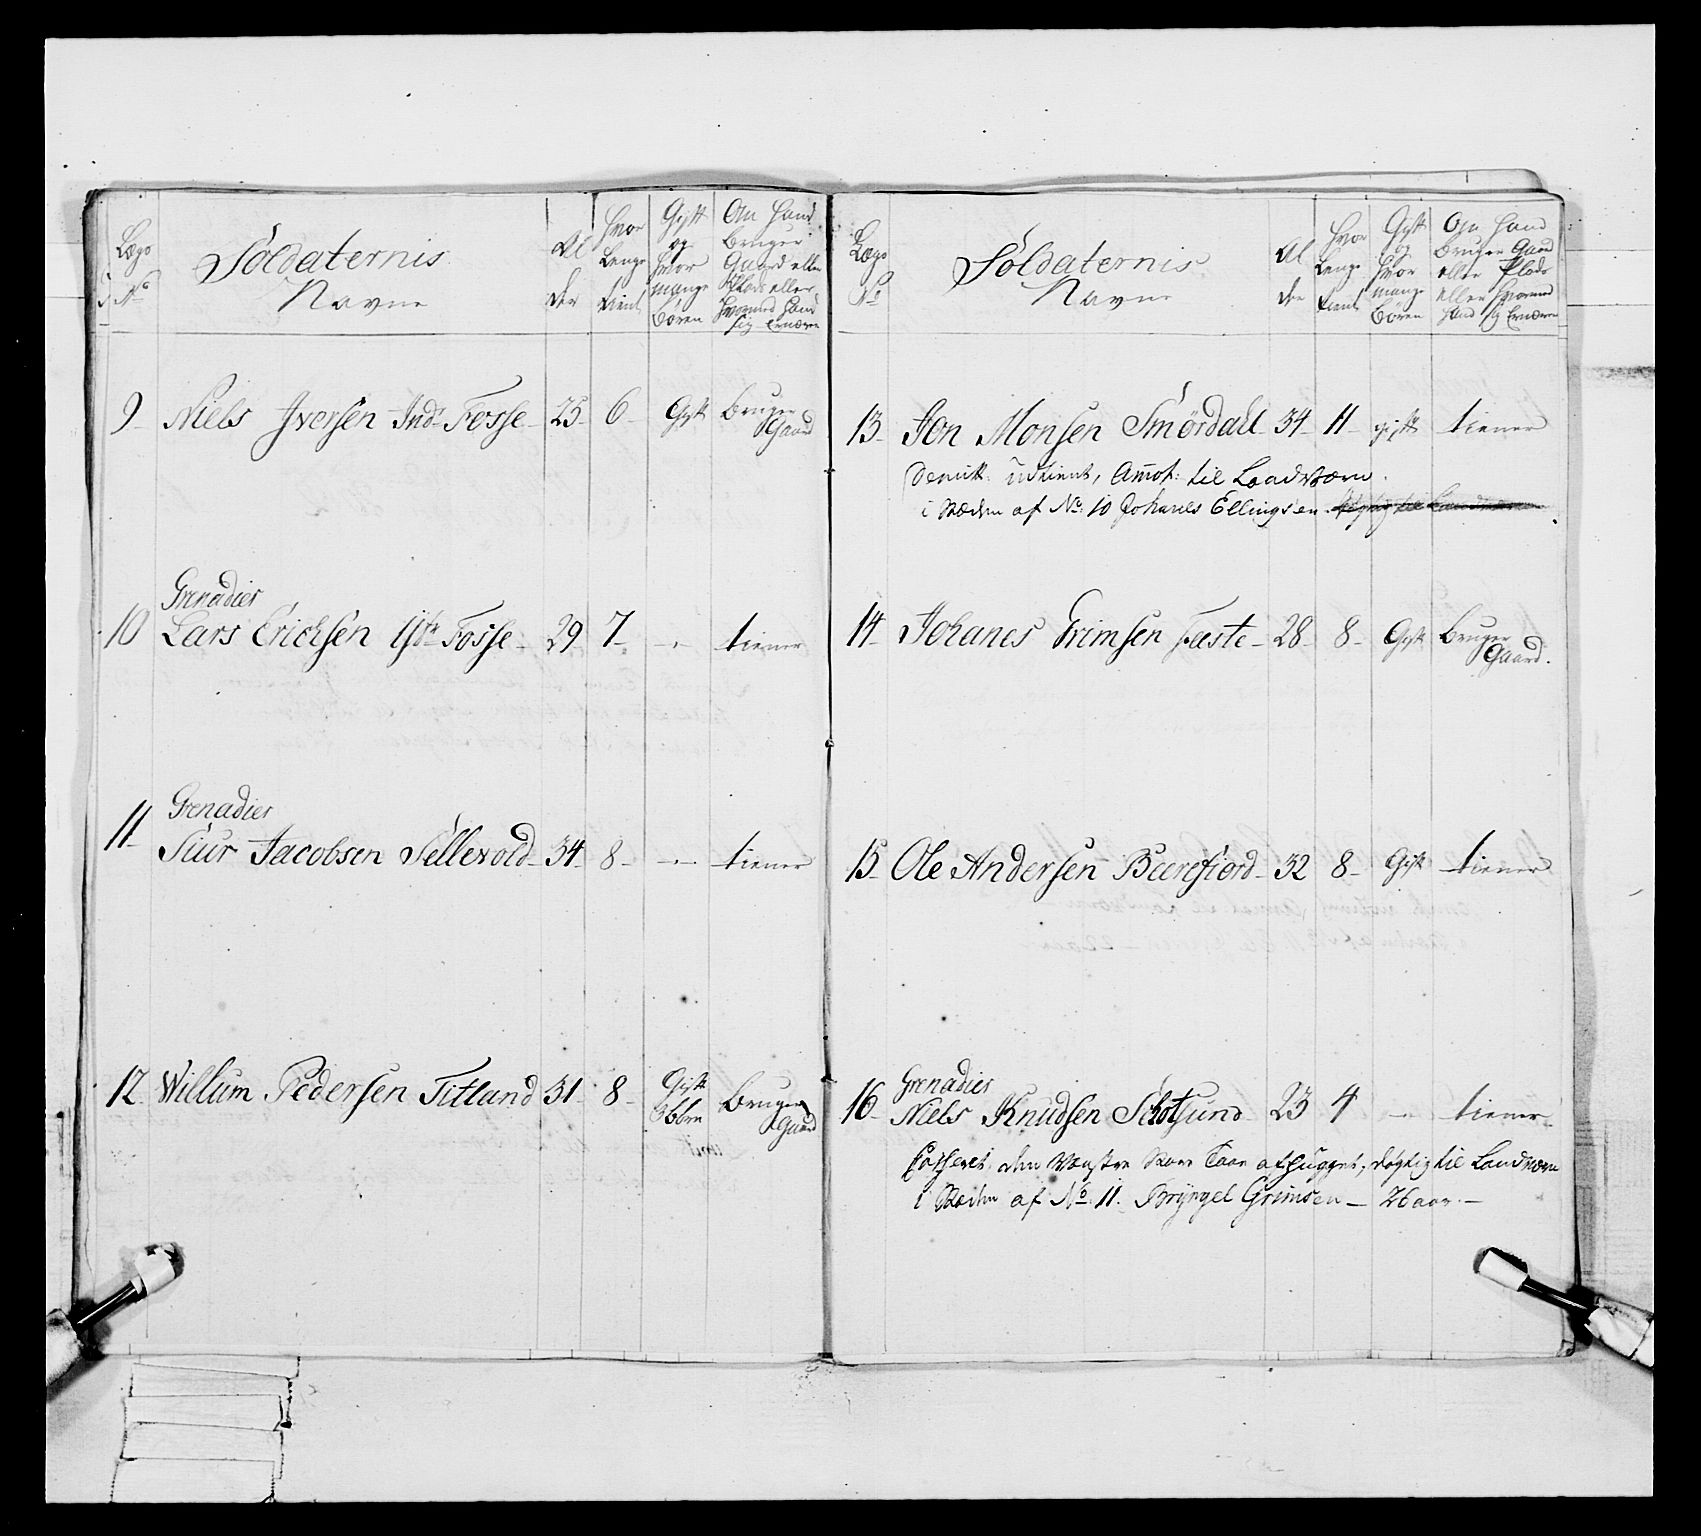 Lægs
No
Soldaternis
Navne
Al
der
Hvor
Lenge
tient
Gift
og
hvor
mange
Børen
Om Hand
bruger
Gaard eller
Plads eller
hvormed Hand
sig Ernærer
9 Niels Iversen Indr Fosse 25 6 Gift bruger
Gaard
Grenadier
10 Lars Erichsen Ydr Fosse 29 7 - tiener
Grenadier
11 Siur Jacobsen Sellevold 34 8 - tiener
12 Willum Pedersen Titland 31 8 Gift Bruger
3 bbrn Gaard
Lægs
No
Soldaternis
Navne
Al
der
Hvor
Lenge
tient
Gift
og
hvor
mange
Børen
Om Hand
bruger Gaard
eller Plads
eller hvormed
Hand sig Ernærer
13 Jon Monsen Smørdall 34 11 gift tiener
Demitt: udtient, Annot: til Landværn
i Stæden af No: 10 Johanes Ellingsen
14 Johanes Grimsen Fæste 28 8 Gift Bruger
Gaard.
15 Ole Andersen Beerefiord 32 8 Gift tiener
Grenadier
16 Niels Knudsen Schotsund 23 4 - tiener
Casseret, den Venstre Store Taae afhugget, dygtig til Landværn
i Stæden af No: 11. Bryngel Grimsen - 26 aar -